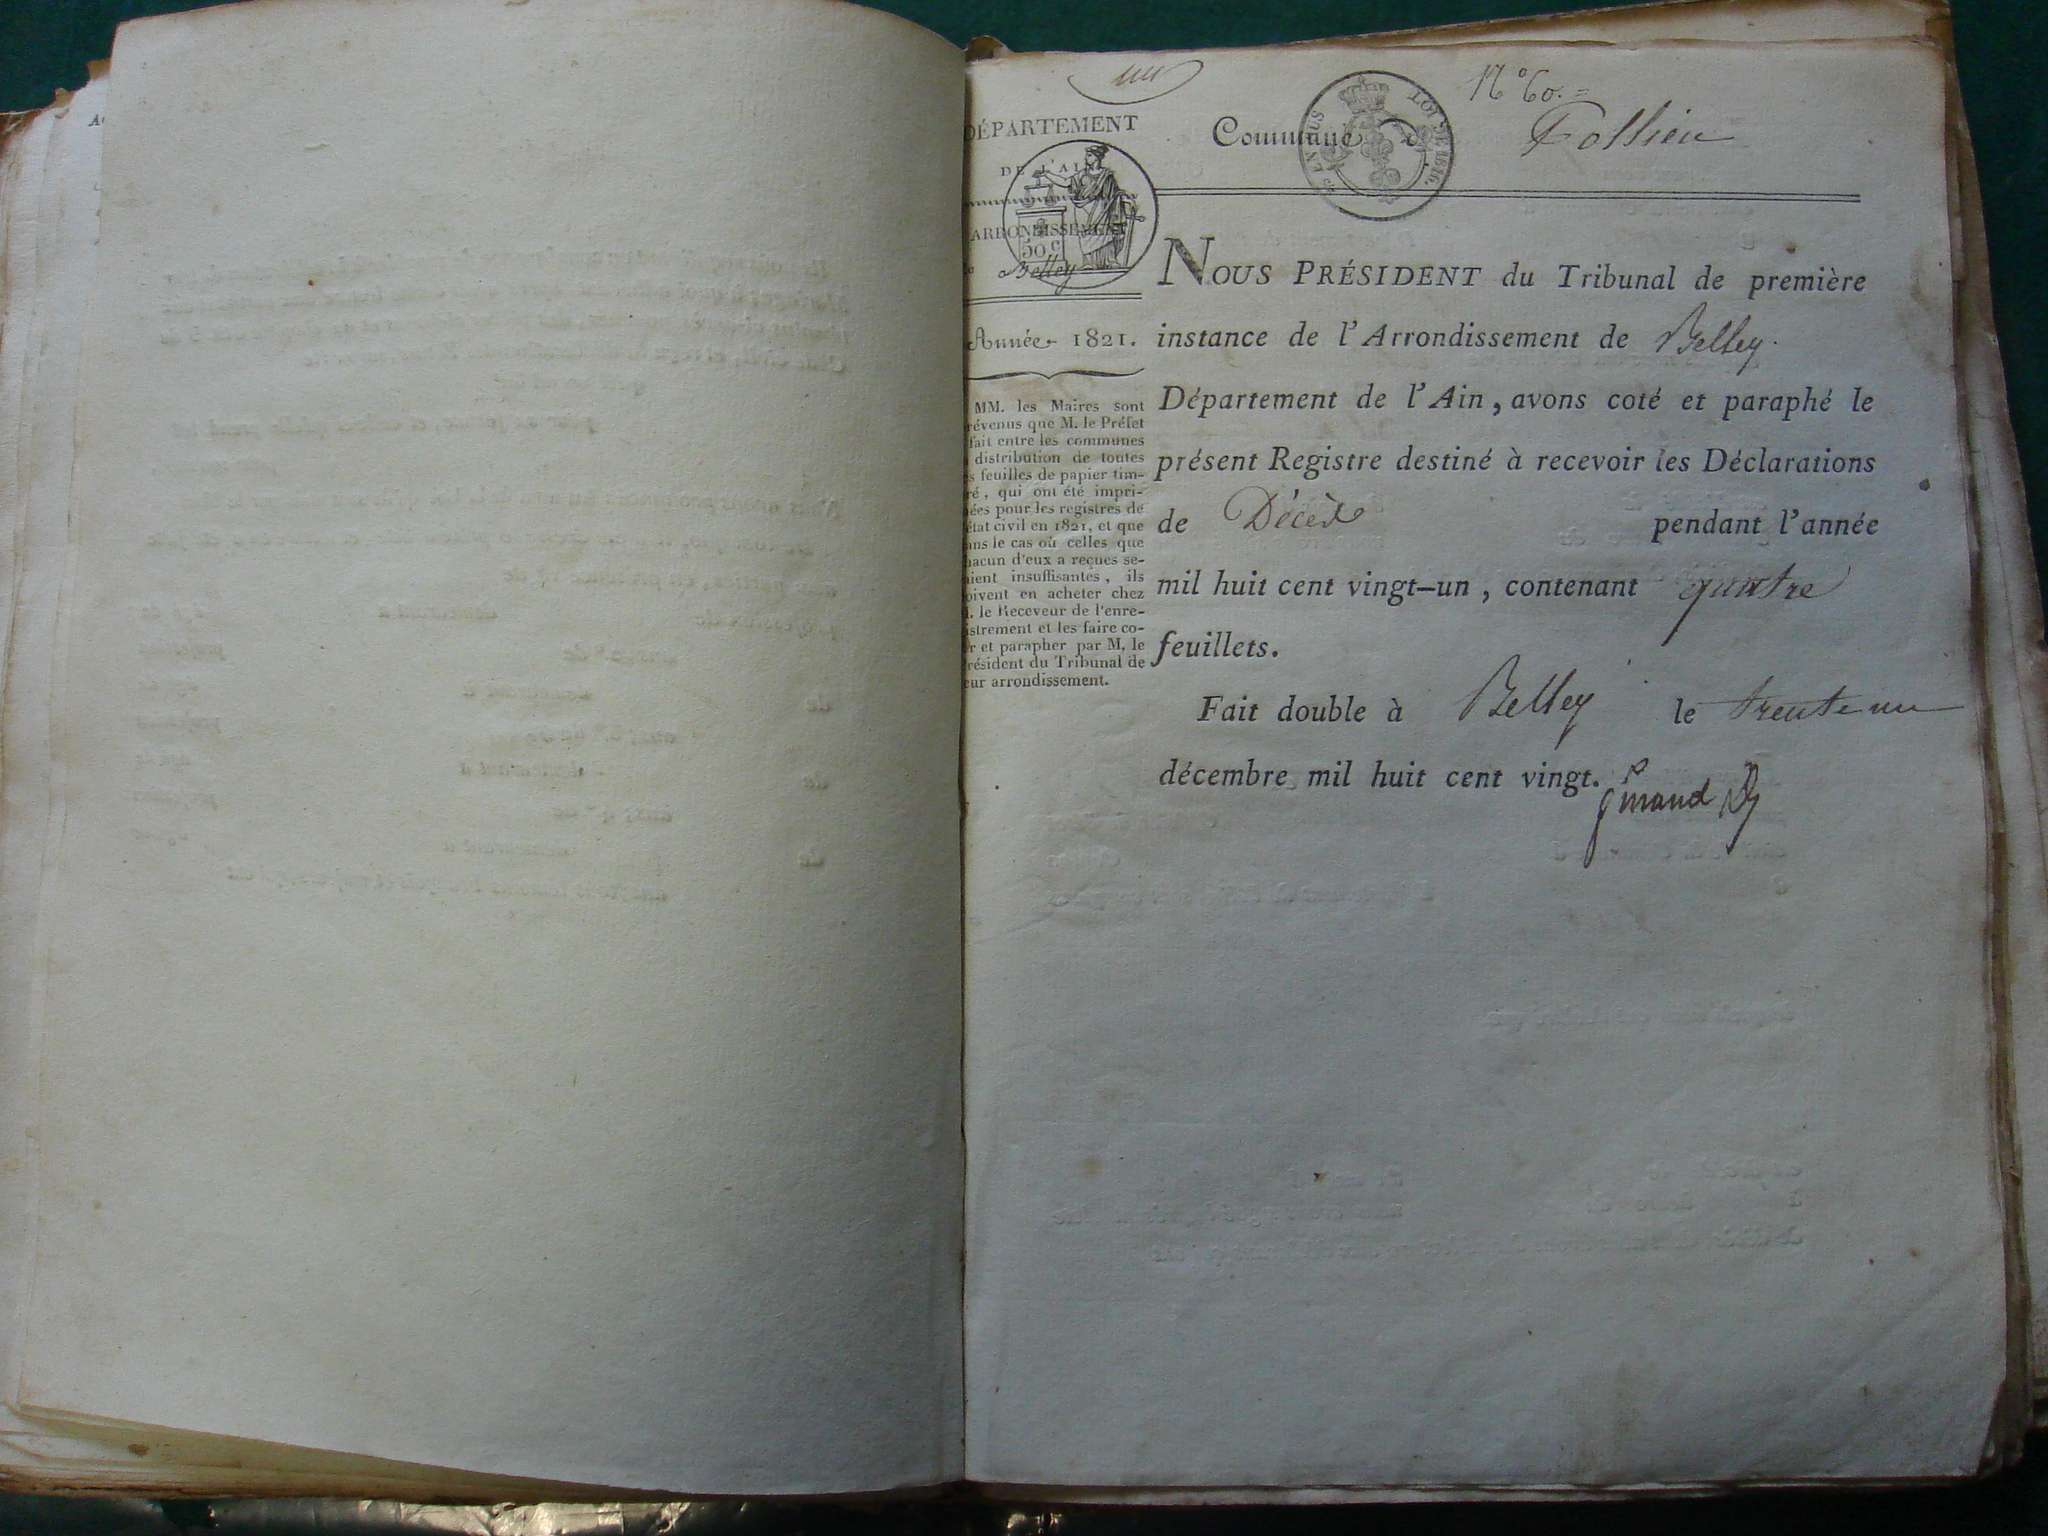 un
N° 60.=
DÉPARTEMENT
DE L'AI
ARRONDISSEMENT
50c
Belley
Année 1821.
MM. les Maires sont
révenus que M. le Préfet
fait entre les communes
distribution de toutes
s feuilles de papier tim-
ré, qui ont été impri-
ées pour les registres de
état civil en 1821, et que
ans le cas où celles que
hacun d'eux a reçues se-
aient insuffisantes, ils
oivent en acheter chez
. le Receveur de l'enre-
istrement et les faire co-
r et parapher par M. le
résident du Tribunal de
eur arrondissement.
Commune d Collieu
LOI DE 1816.
NOUS PRÉSIDENT du Tribunal de première
instance de l'Arrondissement de Belley.
Département de l'Ain, avons coté et paraphé le
présent Registre destiné à recevoir les Déclarations
de Décès pendant l'année
mil huit cent vingt-un, contenant quatre
feuillets.
Fait double à Belley le trente un
décembre mil huit cent vingt.